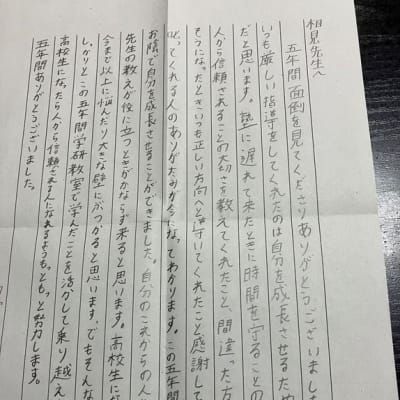 相見先生へ
五年間面倒を見てくださりありがとうございました
いつも厳しい指導をしてくれたのは自分を成長させるため
だと思います。塾に遅れて来たときに時間を守ることの
人から信頼されることの大切さを教えてくれたこと、間違った方
そうになったときいつも正しい方向へと導いてくれたこと感謝して
叱ってくれる人のありがたみが今になってわかります。この五年間
お陰で自分を成長させることができました。自分のこれからの人
先生の教えが役に立つときがかならず来ると思います。高校生にな
今まで以上に悩んだり大きな壁にぶつかると思います、でもそんな
しっかりとこの五年間学研教室で学んだことを活かして乗り越え
高校生になったら人から信頼される人になれるようもっともっと努力します。
五年間ありがとうございました。